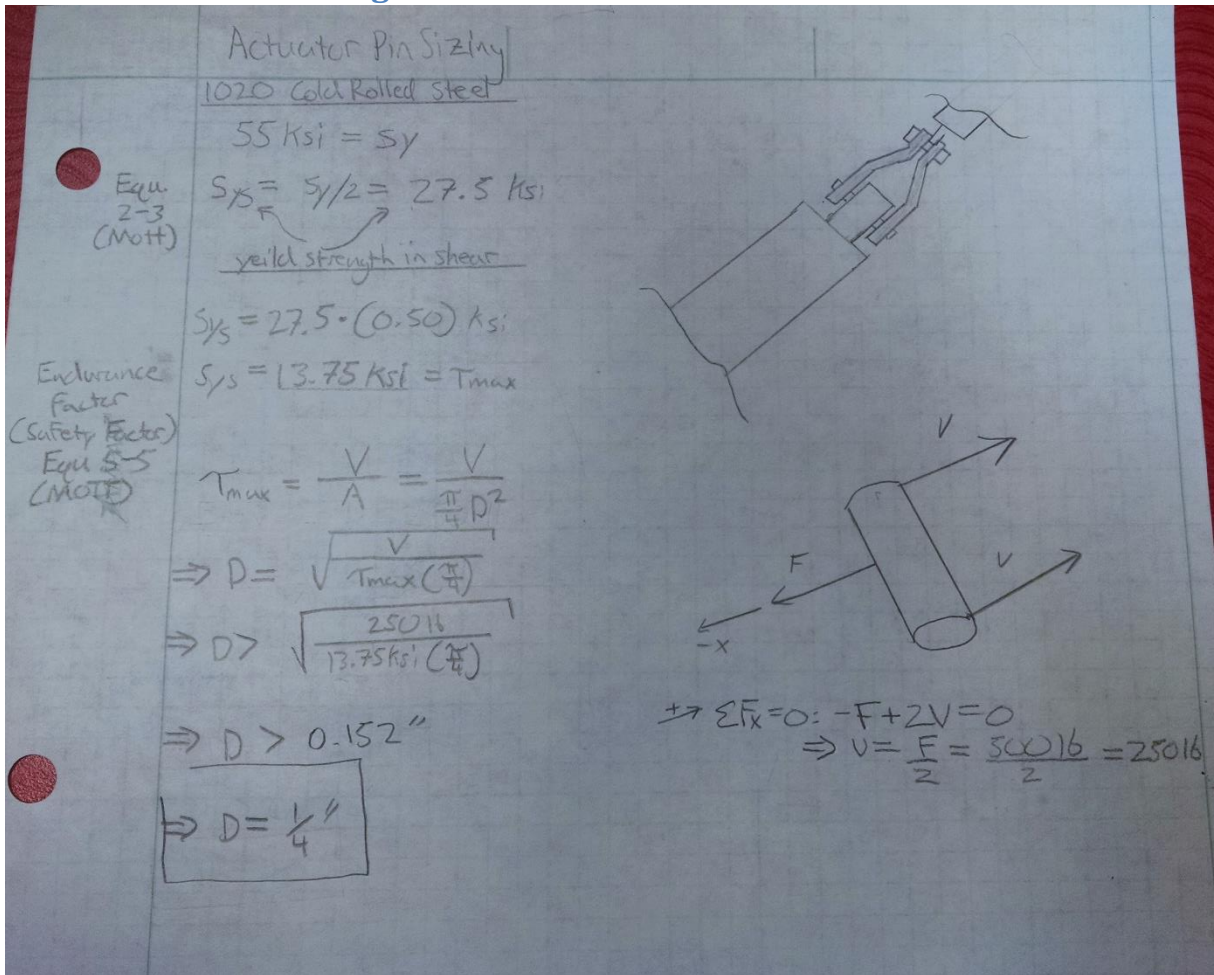 Actuator Pin Sizing
1020 Cold Rolled Steel
55 Ksi = Sy
Equ.
2-3
(Mott)
Sys = Sy/2 = 27.5 Ksi
yeild strength in shear
Sys = 27.5 · (0.50) Ksi
Endurance
Factor
(Safety Factor)
Equ 5-5
(MOTT)
Sys = 13.75 Ksi = Tmax
Tmax = V/A = V/(π/4 D²)
⇒ D = √(V/(Tmax(π/4)))
⇒ D > √(250 lb/(13.75 Ksi (π/4)))
⇒ D > 0.152"
⇒ D = 1/4"
V
V
F
-x
+→ ΣFx=0: -F+2V=0
⇒ V = F/2 = 500 lb/2 = 250 lb